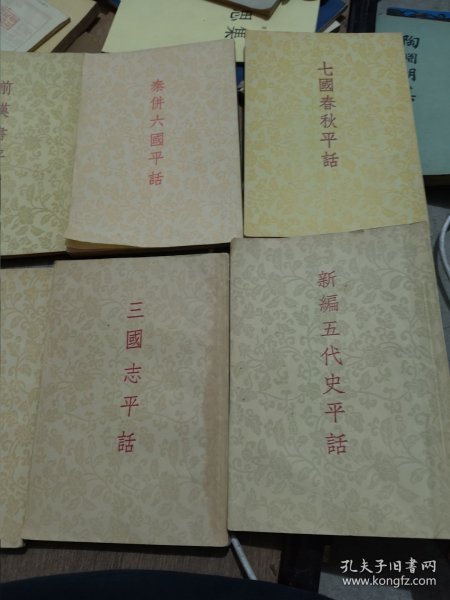 前漢書平
秦併六國平話
七國春秋平話
三國志平話
新編五代史平話
陶淵明
孔夫子旧书网
www.kongfz.com